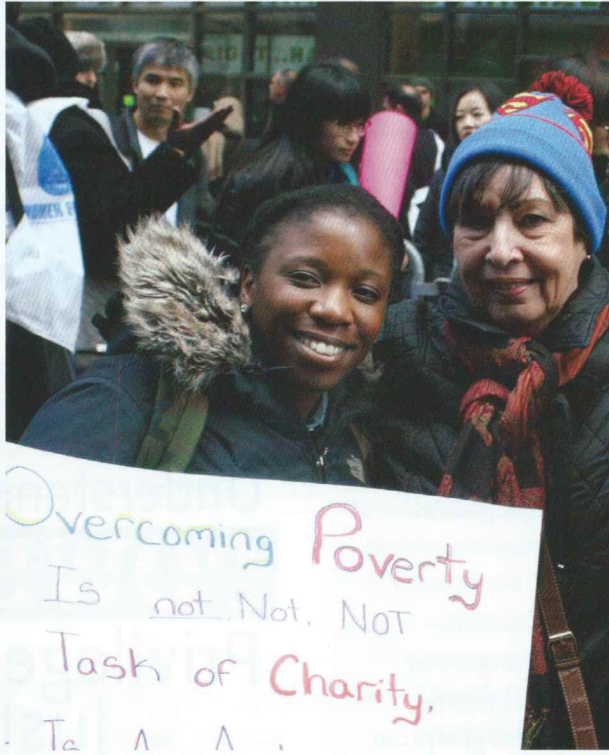 Overcoming Poverty
Is not. Not. NOT
Task of Charity.